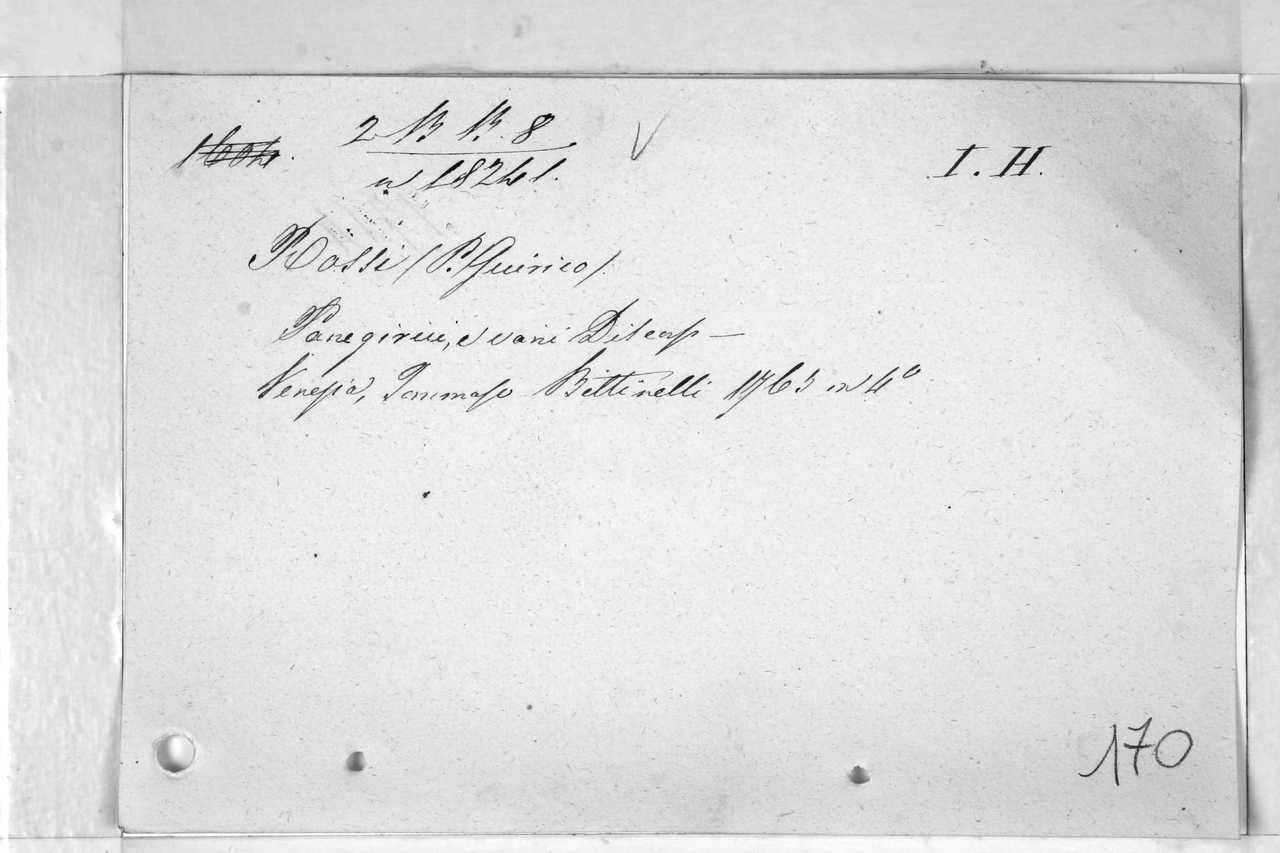 2 13 13. 8
I. H.
n 18241.
Rossi (P. Quirico)
Panegirici, e varii Discorsi —
Venezia, Tommaso Bettinelli 1763 in 4°
170